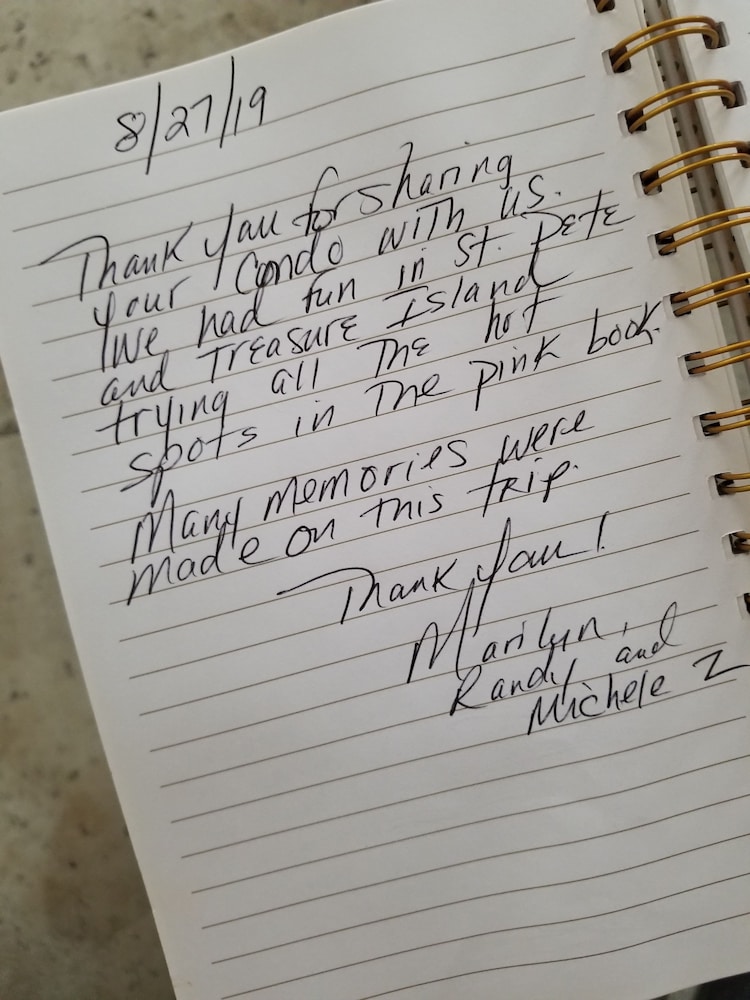 8/27/19
Thank you for sharing
your Condo with us.
We had fun in St. Pete
and Treasure Island
trying all The hot
spots in The pink book.
Many memories were
made on this trip.
Thank you!
Marilyn,
Randy and
Michele Z